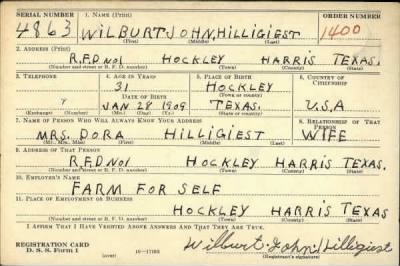 SERIAL NUMBER 1. NAME (Print) ORDER NUMBER
4863 WILBURT JOHN, HILLIGIEST 1400
(First) (Middle) (Last)
2. ADDRESS (Print)
R.F.D NO1 HOCKLEY HARRIS TEXAS.
(Number and street or R. F. D. number) (Town) (County) (State)
3. TELEPHONE 4. AGE IN YEARS 5. PLACE OF BIRTH 6. COUNTRY OF CITIZENSHIP
31 HOCKLEY
DATE OF BIRTH (Town or county)
JAN 28 1909 TEXAS. U.S.A
(Exchange) (Number) (Mo.) (Day) (Yr.) (State or country)
7. NAME OF PERSON WHO WILL ALWAYS KNOW YOUR ADDRESS 8. RELATIONSHIP OF THAT PERSON
MRS. DORA HILLIGIEST WIFE
(Mr., Mrs., Miss) (First) (Middle) (Last)
9. ADDRESS OF THAT PERSON
R.F.D NO1 HOCKLEY HARRIS TEXAS.
(Number and street or R. F. D. number) (Town) (County) (State)
10. EMPLOYER'S NAME
FARM FOR SELF
11. PLACE OF EMPLOYMENT OR BUSINESS
HOCKLEY HARRIS TEXAS
(Number and street or R. F. D. number) (Town) (County) (State)
I AFFIRM THAT I HAVE VERIFIED ABOVE ANSWERS AND THAT THEY ARE TRUE.
REGISTRATION CARD
D. S. S. Form 1 (over) Wilburt John Hilligiest
(Registrant's signature)